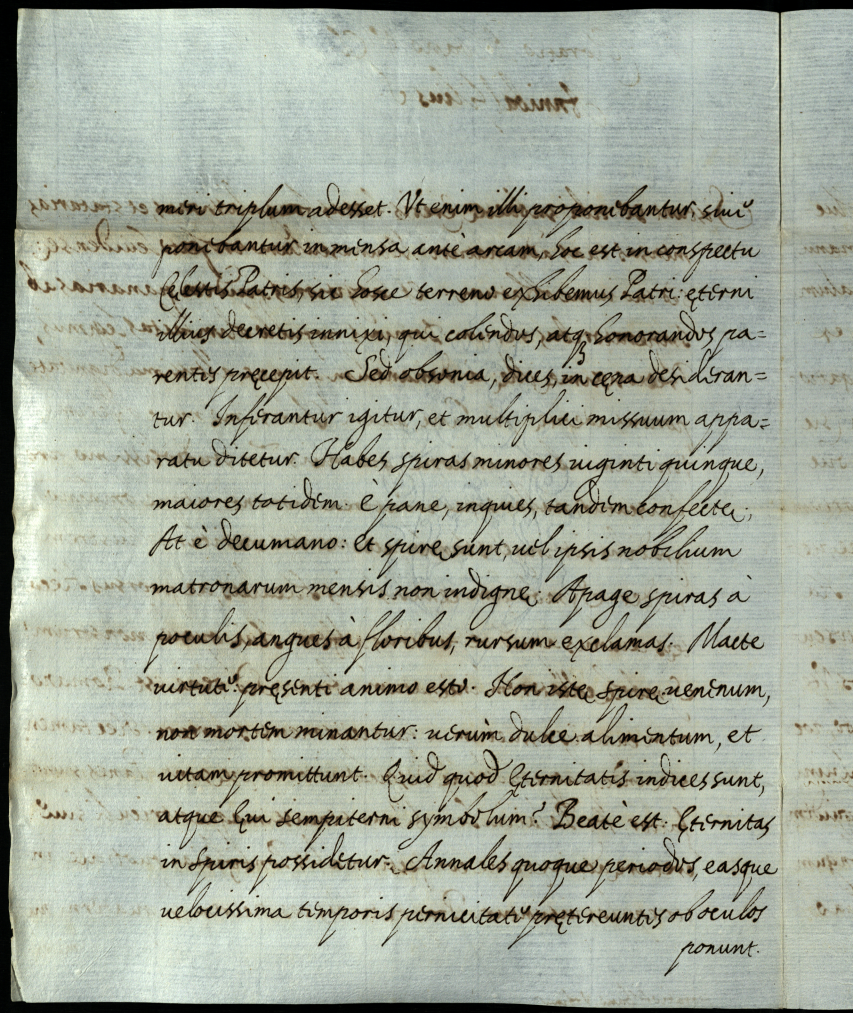 meri triplum adesset. Vt enim illi proponebantur, siuè
ponebantur in mensa antè arcam, hoc est in conspectu
Cęlestis Patris, sic hosce terreno exhibemus Patri: ęterni
illius decretis innixi, qui colendos, atq; honorandos pa=
rentis pręcepit. Sed obsonia, dices, in cęna desideran=
tur. Inferantur igitur, et multiplici missuum appa=
ratu ditetur. Habes spiras minores uiginti quinque,
maiores totidem. è pane, inquies, tandem confectę;
At è decumano: et spirę sunt, uel ipsis nobilium
matronarum mensis non indignę. Apage spiras à
poculis, angues à floribus, rursum exclamas. Macte
virtutè: pręsenti animo esto. Non istę spirę uenenum,
non mortem minantur: uerùm dulce alimentum, et
uitam promittunt. Quid quod Ęternitatis indices sunt,
atque Ęui sempiterni symbolum? Beatè est. Ęternitas
in spiris possidetur. Annales quoque periodos, easque
uelocissima temporis pernicitatè pręтereuntis ob oculos
ponunt.